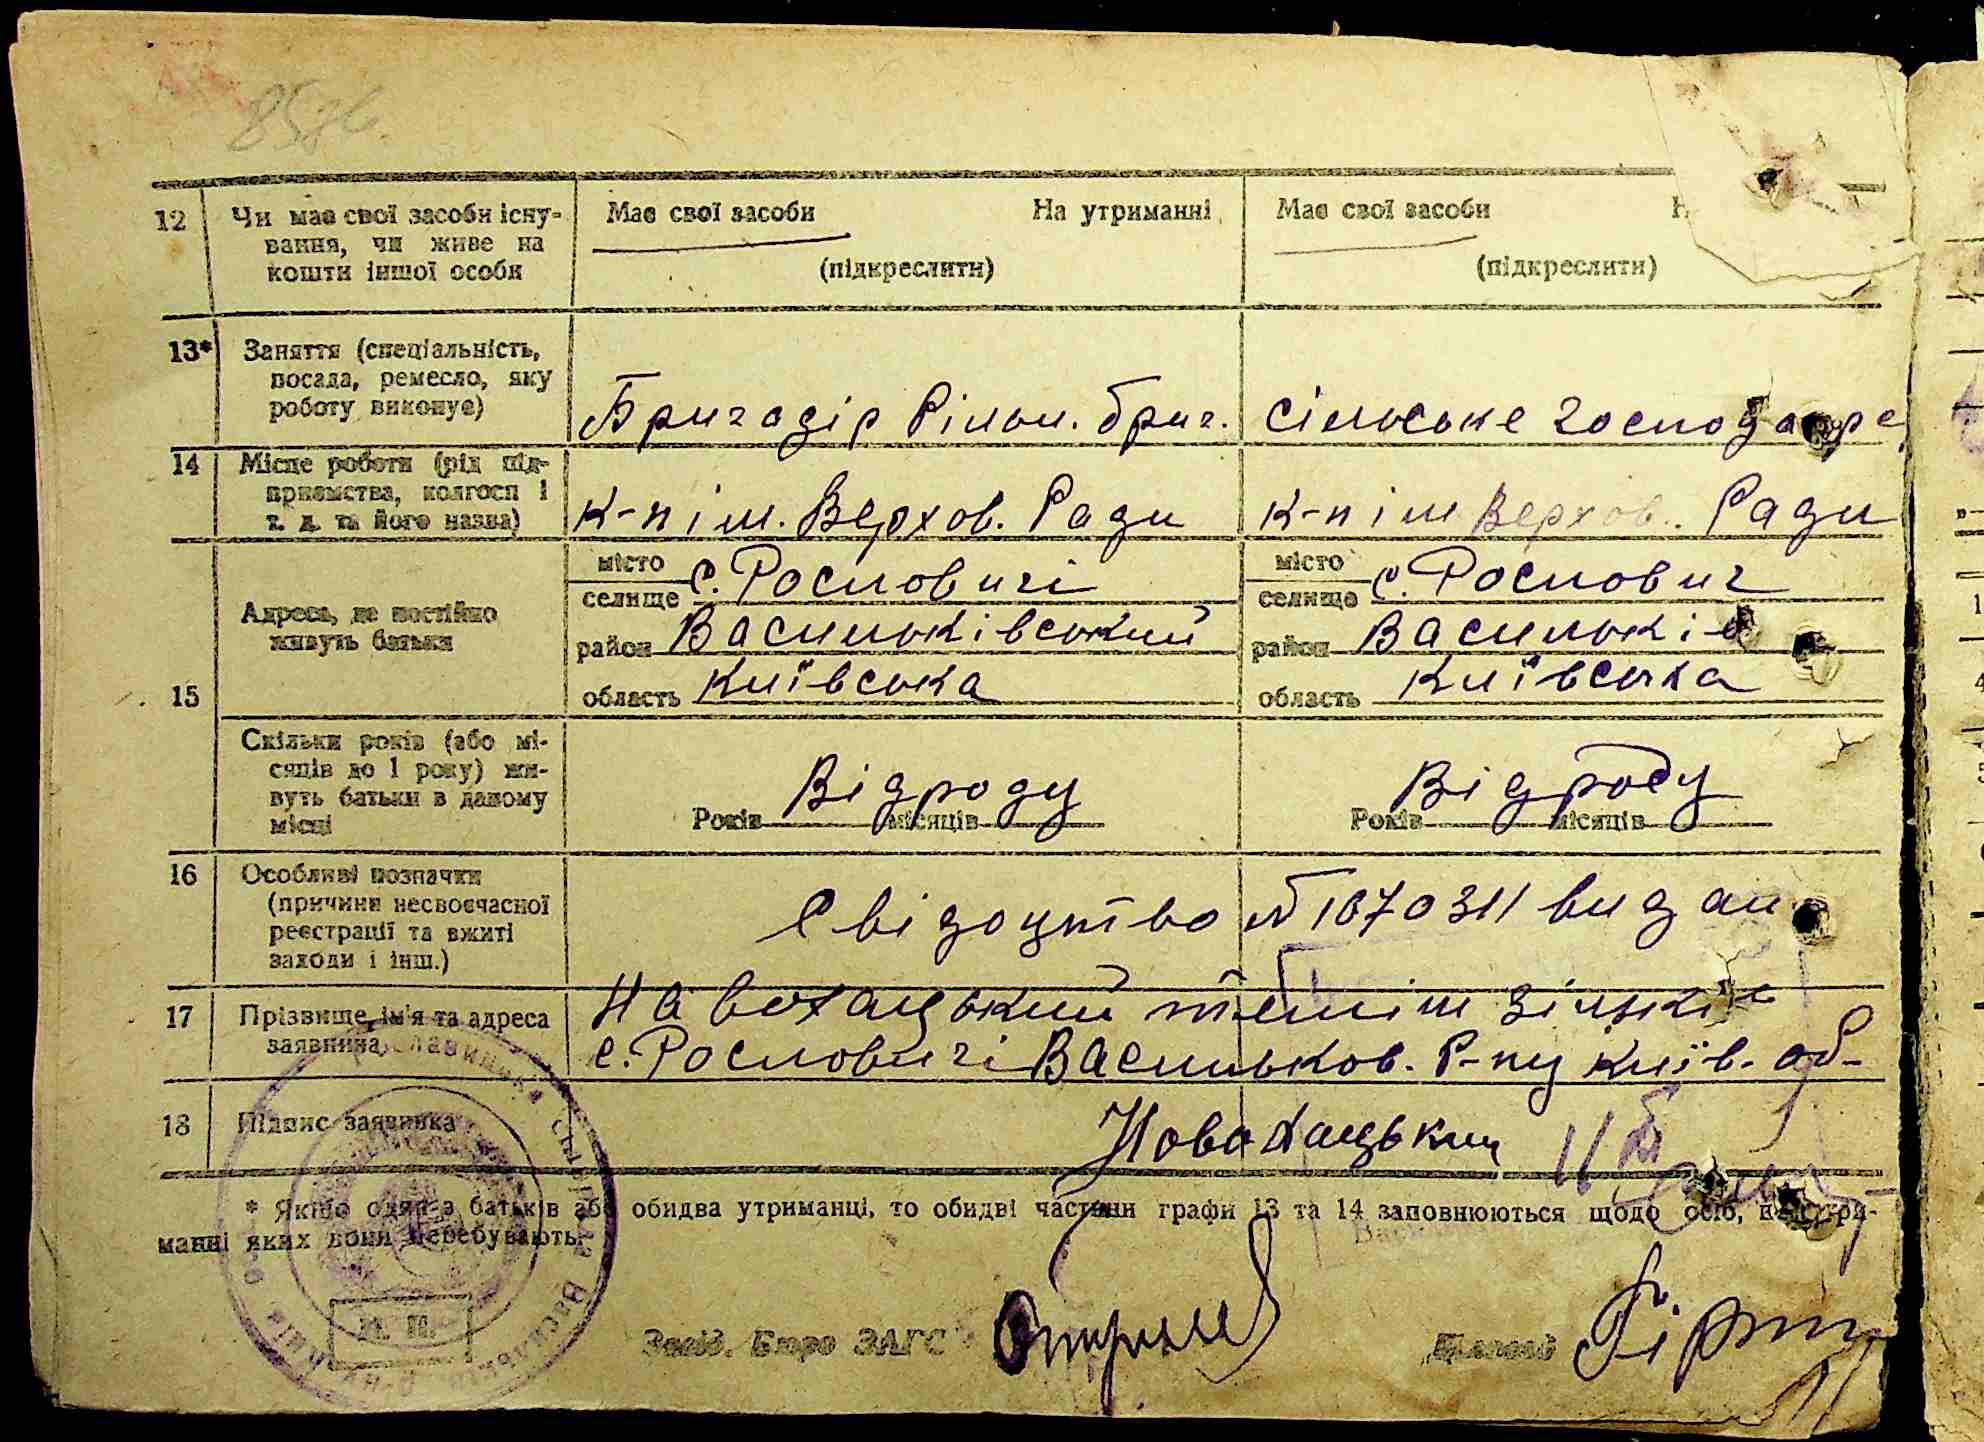 12 Чи має свої засоби існу-
вання, чи живе на
кошти іншої особи
Має свої засоби На утриманні
(підкреслити)
Має свої засоби
(підкреслити)
13* Заняття (спеціальність,
посада, ремесло, яку
роботу виконує)
Бригадір Рільн. бриг.
сільське господарс
14 Місце роботи (рід під-
приємства, колгосп і
т. д. та його назва)
к-п ім. Верхов. Ради
к-п ім Верхов. Ради
15 Адреса, де постійно
живуть батьки
місто
селище с. Росновичі
район Васильківський
область Київська
місто
селище с. Роснович
район Васильків
область Київська
Скільки років (або мі-
сяців до 1 року) жи-
вуть батьки в даному
місці
Відроду
Років місяців
Відроду
Років місяців
16 Особливі позначки
(причини несвоєчасної
реєстрації та вжиті
заходи і інш.)
Свідоцтво № 1670311 видан
17 Прізвище, ім'я та адреса
заявника
с. Росновичі Васильков. Р-ну Київ. об-
18 Підпис заявника
Новохацький
* Якщо один з батьків або обидва утриманці, то обидві частини графи 13 та 14 заповнюються щодо осіб, на утри-
манні яких вони перебувають.
М. П.
Завід. Бюро ЗАГС